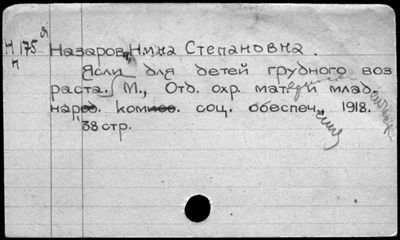 Я
Н 175 Назарова, Нина Степановна.
Н
Ясли для детей грудного воз
раста. М., Отд. охр. мат. и млад.
нар. ком. соц. обеспеч., 1918.
38 стр.